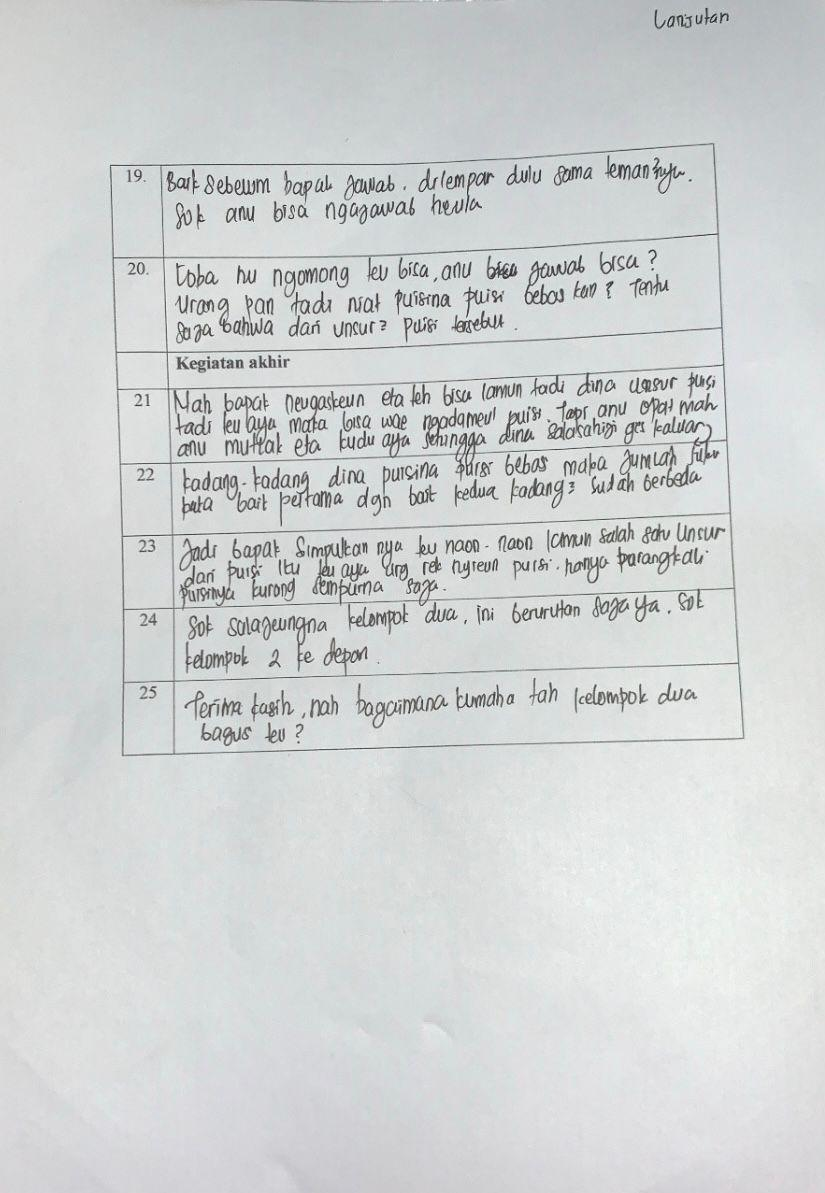 Lanjutan
19. Baik Sebelum bapak jawab. dilempar dulu sama teman2nya.
Sok anu bisa ngajawab heula
20. Coba nu ngomong teu bisa, anu bisa jawab bisa?
Urang pan tadi niat puisina puisi bebas kan? Tentu
saja bahwa dari unsur2 puisi tersebut.
Kegiatan akhir
21 Nah bapak neugaskeun eta teh bisa lamun tadi dina unsur puisi
tadi teu aya maka bisa wae ngadameul puisi. Tapi anu opat mah
anu mutlak eta kudu aya sehingga dina salasahiji ges kaluar
22 kadang-kadang dina puisina puisi bebas maka jumlah suku
kata bait pertama dgn bait kedua kadang2 sudah berbeda
23 Jadi bapak Simpulkan nya teu naon-naon lamun salah satu Unsur
dari puisi itu teu aya urg rek nyieun puisi. hanya barangkali
puisinya kurang sempurna saja.
24 Sok salajeungna kelompok dua, ini berurutan saja ya. Sok
kelompok 2 ke depan.
25 Terima kasih, nah bagaimana kumaha tah kelompok dua
bagus teu?